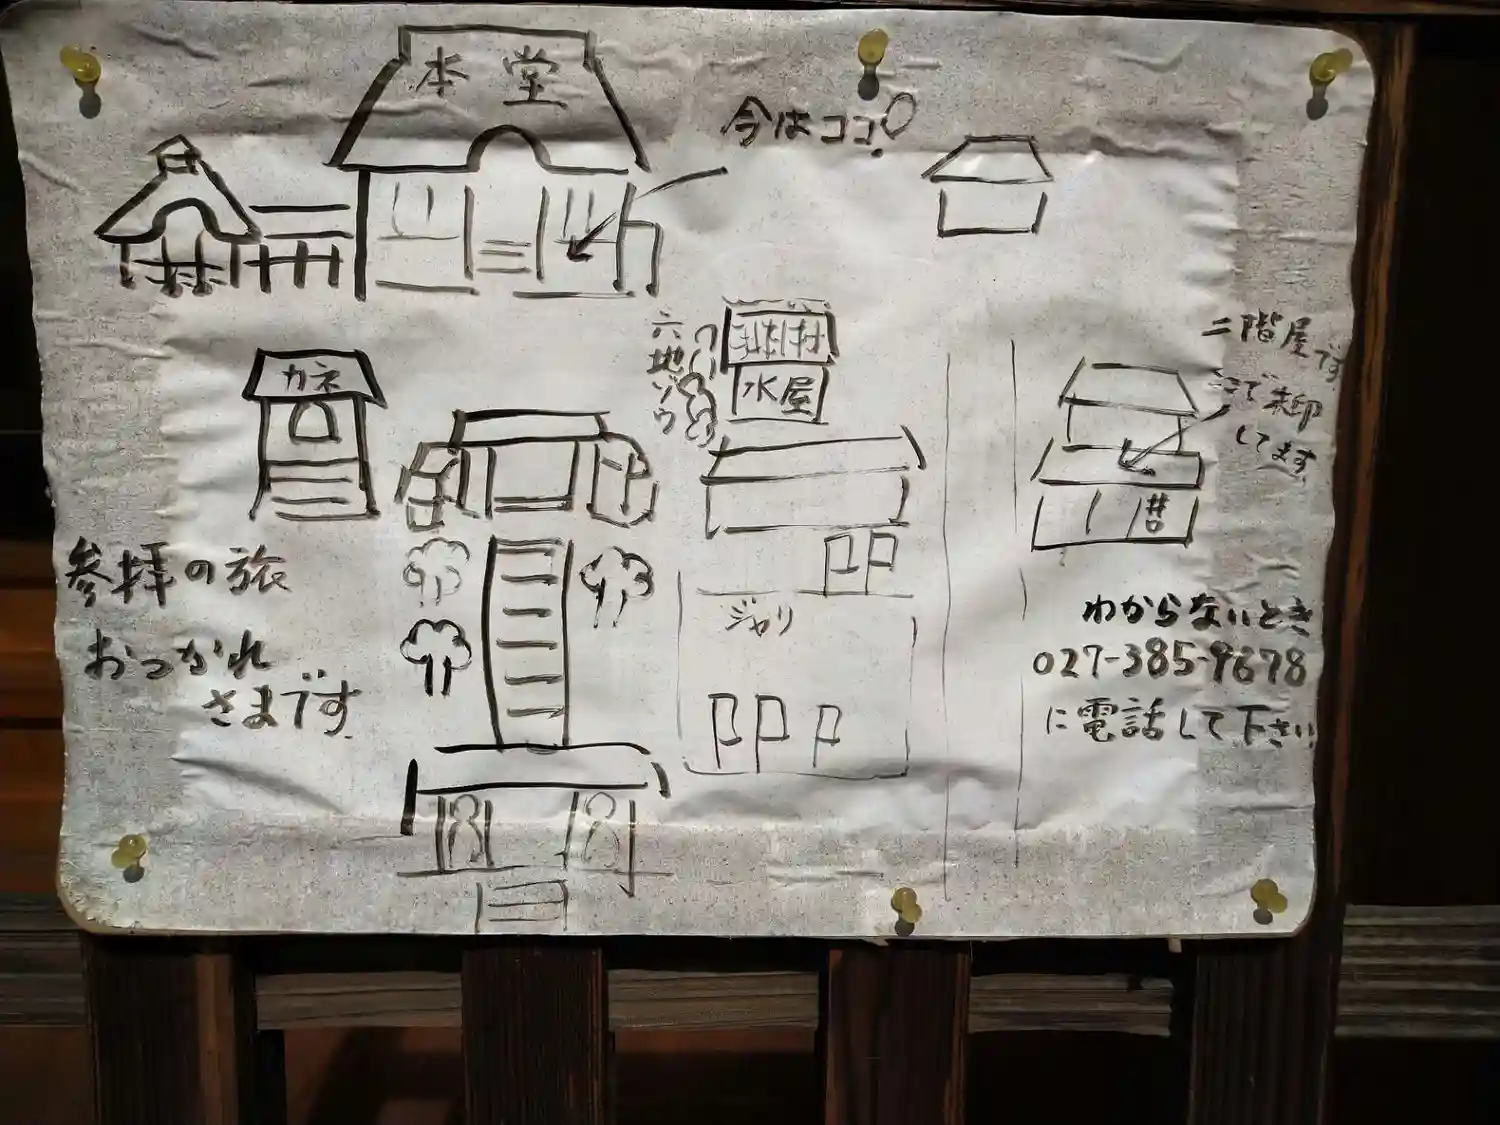 本堂
今はココ!
カネ
六地ゾウ
水屋
二階屋です
ここで朱印
してます
参拝の旅
おつかれ
さまです
ジャリ
P P
P P P
わからないとき
027-385-9678
に電話して下さい